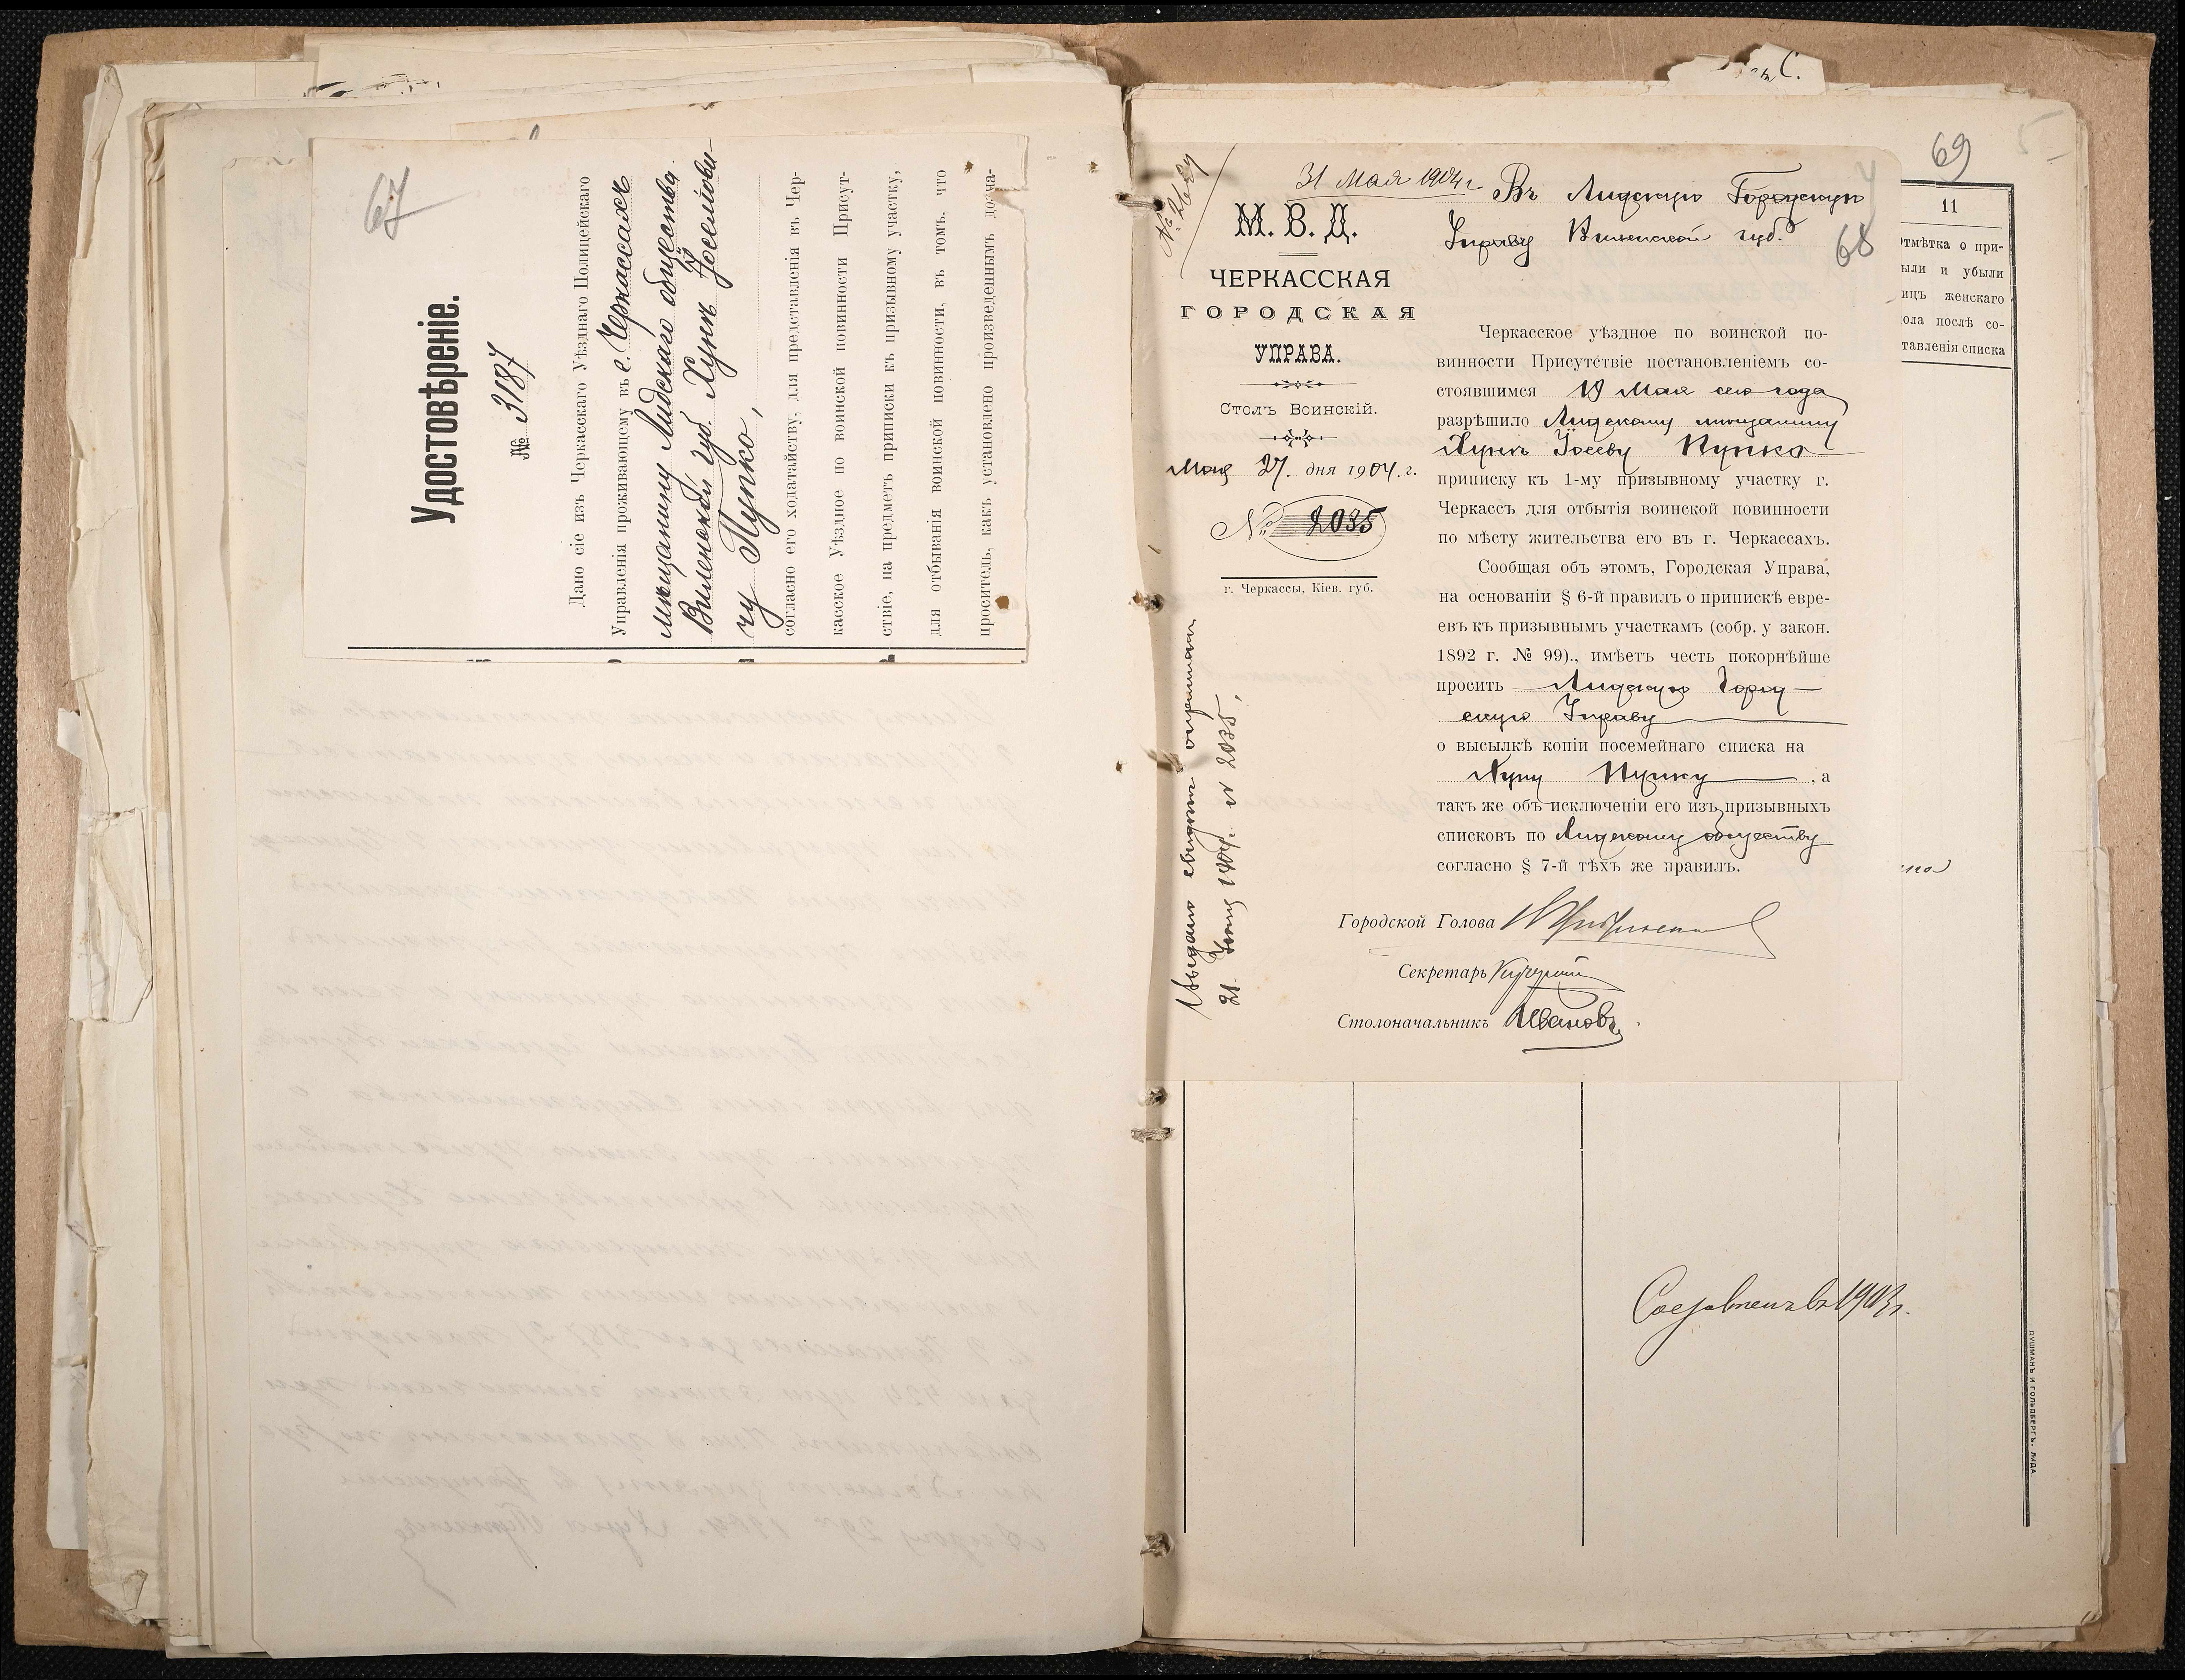 67
Удостовѣреніе.
№ 3187
Дано сіе изъ Черкасскаго Уѣзднаго Полицейскаго
Управленія проживающему въ г. Черкассахъ
мѣщанину Лидскаго общества
Виленской губ. Хунѣ Іоселіови-
чу Пупко,
согласно его ходатайству, для представленія въ Чер-
касское Уѣздное по воинской повинности Присут-
ствіе, на предметъ приписки къ призывному участку,
для отбыванія воинской повинности, въ томъ, что
проситель, какъ установлено произведеннымъ дозна-
31 Мая 1904 г.
М. В. Д.
ЧЕРКАССКАЯ
ГОРОДСКАЯ
УПРАВА.
Столъ Воинскій.
Мая 27 дня 1904 г.
№ 2035
г. Черкассы, Кіев. губ.
Въ Лидскую Городскую
Управу Виленской губ.
68
Черкасское уѣздное по воинской по-
винности Присутствіе постановленіемъ со-
стоявшимся 19 Мая сего года
разрѣшило Лидскому мѣщанину
Хунѣ Іосеву Пупко
приписку къ 1-му призывному участку г.
Черкассъ для отбытія воинской повинности
по мѣсту жительства его въ г. Черкассахъ.
Сообщая объ этомъ, Городская Управа,
на основаніи § 6-й правилъ о припискѣ евре-
евъ къ призывнымъ участкамъ (собр. у закон.
1892 г. № 99)., имѣетъ честь покорнѣйше
просить Лидскую Город-
скую Управу
о высылкѣ копіи посемейнаго списка на
Хуну Пупку, а
такъ же объ исключеніи его изъ призывныхъ
списковъ по Лидскому обществу
согласно § 7-й тѣхъ же правилъ.
Городской Голова
Секретарь
Столоначальникъ Ивановъ
21 1904 г. № 2035,
69
11
Отмѣтка о при-
были и убыли
лицъ женскаго
пола послѣ со-
ставленія списка
1903 г.
ДУШМАНЪ И ГОЛЬДБЕРГЪ, ЛИДА.